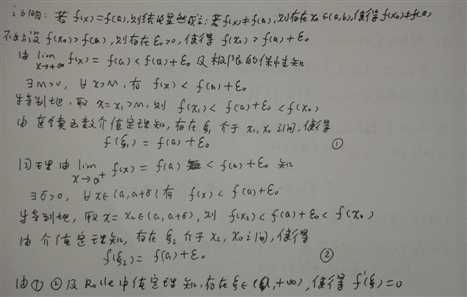 证明: 若 f(x)=f(a), 则结论显然成立; 若 f(x)≠f(a), 则存在 x₀∈(a,b), 使得 f(x₀)≠f(a)
不妨设 f(x₀)>f(a), 则存在 ε₀>0, 使得 f(x₀) > f(a)+ε₀
由 lim_{x→+∞} f(x) = f(a) < f(a)+ε₀ 及极限的保号性知
∃M>0, ∀x>M, 有 f(x) < f(a)+ε₀
特别地, 取 x=x₁>M, 则 f(x₁) < f(a)+ε₀ < f(x₀)
由连续函数介值定理知, 存在 ξ₁ 介于 x₁, x₀ 之间, 使得
f(ξ₁) = f(a)+ε₀ ①
同理由 lim_{x→a⁺} f(x) = f(a) < f(a)+ε₀ 知
∃δ>0, ∀x∈(a,a+δ) 有 f(x) < f(a)+ε₀
特别地, 取 x=x₂∈(a,a+δ), 则 f(x₂) < f(a)+ε₀ < f(x₀)
由介值定理知, 存在 ξ₂ 介于 x₂, x₀ 之间, 使得
f(ξ₂) = f(a)+ε₀ ②
由①②及 Rolle 中值定理知, 存在 ξ∈(a,+∞), 使得 f'(ξ)=0